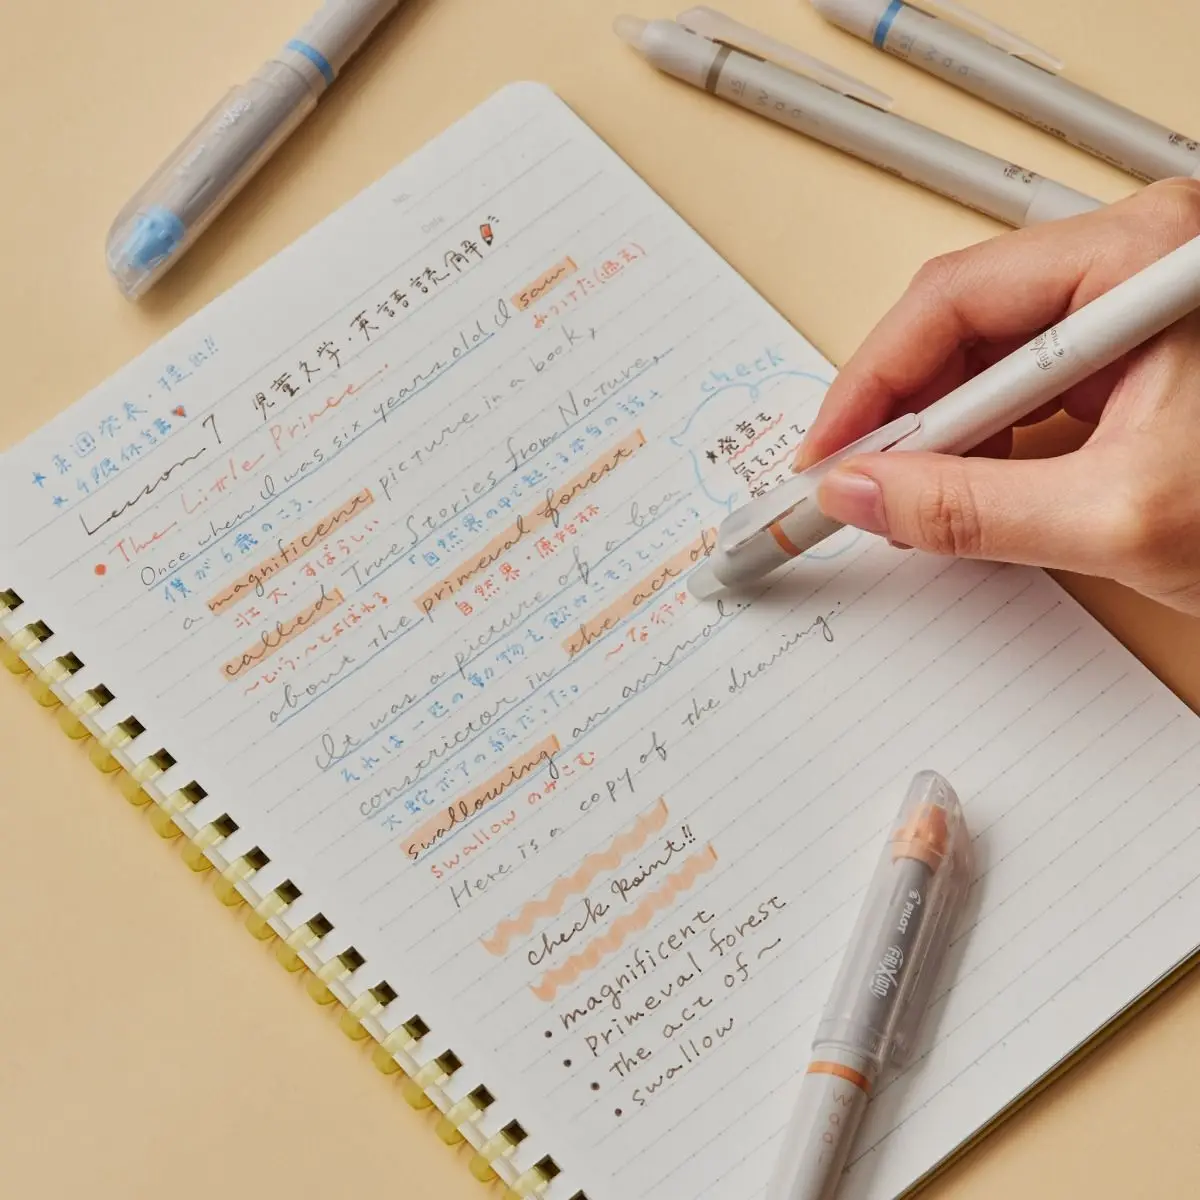 ★来週発表・提出!!
★4限休言葉
Lesson 7 児童文学・英語読解
The Little Prince..
Once when I was six years old I saw
僕が6歳のころ、
みつけた(過去)
a magnificent picture in a book,
壮大・すばらしい
called True Stories from Nature,
〜という・〜とよばれる
「自然界の中で起こる本当の話」
about the primeval forest.
自然界・原始林
It was a picture of a boa
それは一匹の動物を飲みこもうとしている
constrictor in the act of
〜な行為
大蛇ボアの絵だった。
swallowing an animal.
swallow のみこむ
Here is a copy of the drawing.
check
★発音も
気をつけて
check Point!!
・magnificent
・Primeval forest
・the act of〜
・swallow
No.
Date
PILOT
FRIXION
Waai